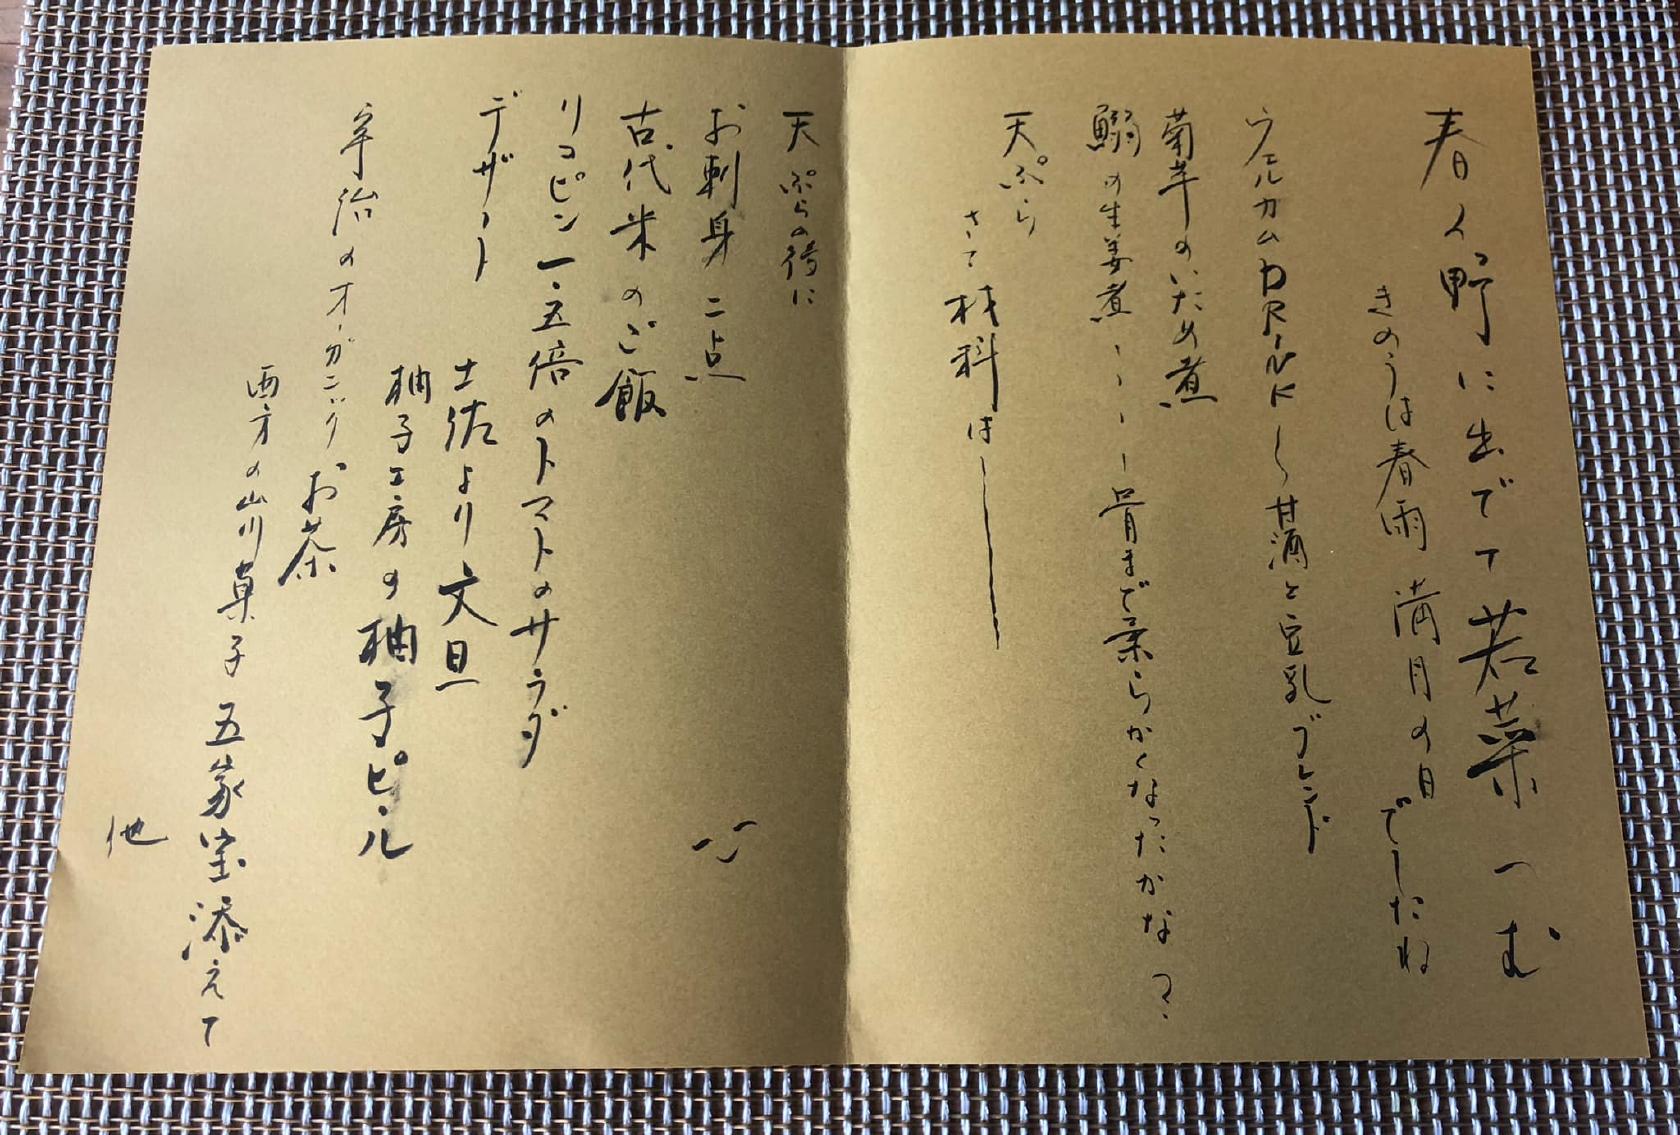 春の野に出でて若菜つむ
きのうは春雨 満月の日でしたね
ウェルカムDRINK〜甘酒と豆乳ブレンド
菊芋のいため煮
鰯の生姜煮 ーーーー骨まで柔らかくなったかな?
天ぷら
さて材料は
天ぷらの後に
お刺身 二点
古代米のご飯
リコピン一.五倍のトマトのサラダ
デザート
土佐より文旦
柚子工房の柚子ピール
宇治のオーガニックお茶
西方の山川菓子 五家宝添えて
他